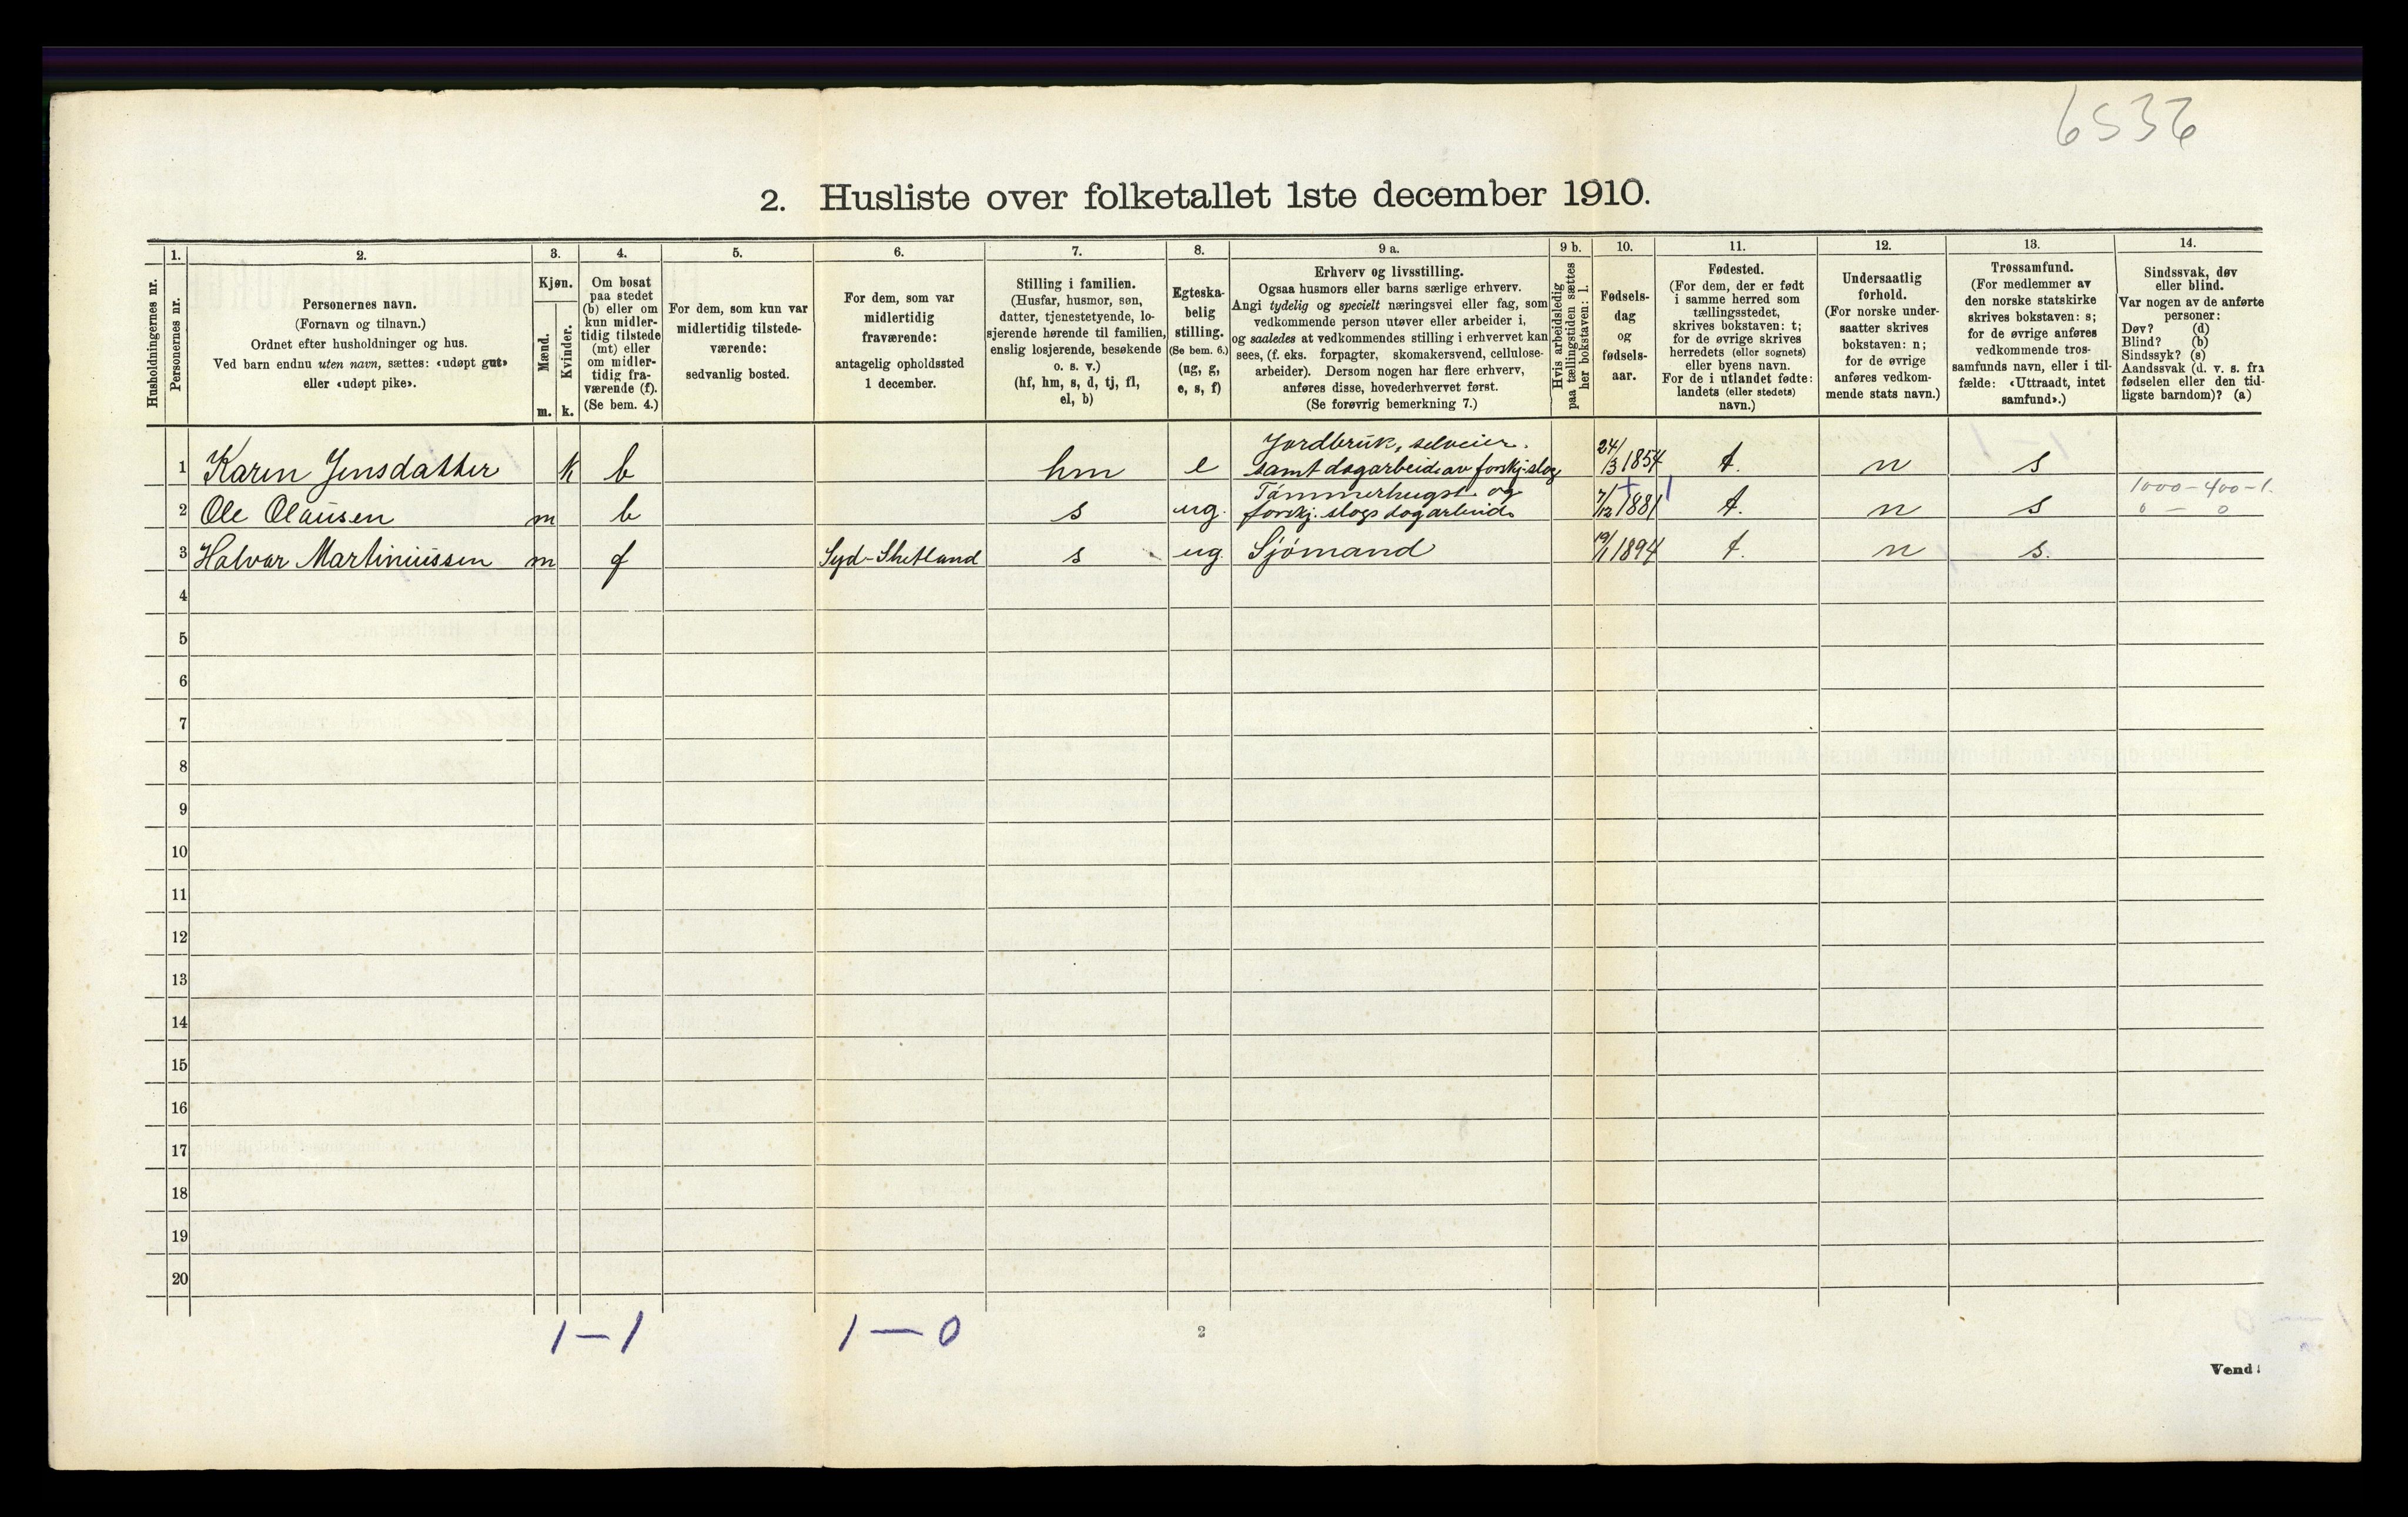 6536
2. Husliste over folketallet 1ste december 1910.
Husholdningernes nr.
1.
Personernes nr.
2.
Personernes navn.
(Fornavn og tilnavn.)
Ordnet efter husholdninger og hus.
Ved barn endnu uten navn, sættes: «udøpt gut»
eller «udøpt pike».
3.
Kjøn.
Mænd.
Kvinder.
m. k.
4.
Om bosat
paa stedet
(b) eller om
kun midler-
tidig tilstede
(mt) eller
om midler-
tidig fra-
værende (f).
(Se bem. 4.)
5.
For dem, som kun var
midlertidig tilstede-
værende:
sedvanlig bosted.
6.
For dem, som var
midlertidig
fraværende:
antagelig opholdssted
1 december.
7.
Stilling i familien.
(Husfar, husmor, søn,
datter, tjenestetyende, lo-
sjerende hørende til familien,
enslig losjerende, besøkende
o. s. v.)
(hf, hm, s, d, tj, fl,
el, b)
8.
Egteska-
belig
stilling.
(Se bem. 6.)
(ug, g,
e, s, f)
9 a.
Erhverv og livsstilling.
Ogsaa husmors eller barns særlige erhverv.
Angi tydelig og specielt næringsvei eller fag, som
vedkommende person utøver eller arbeider i,
og saaledes at vedkommendes stilling i erhvervet kan
sees, (f. eks. forpagter, skomakersvend, cellulose-
arbeider). Dersom nogen har flere erhverv,
anføres disse, hovederhvervet først.
(Se forøvrig bemerkning 7.)
9 b.
Hvis arbeidsledig
paa tællingstiden sættes
her bokstaven: l.
10.
Fødsels-
dag
og
fødsels-
aar.
11.
Fødested.
(For dem, der er født
i samme herred som
tællingsstedet,
skrives bokstaven: t;
for de øvrige skrives
herredets (eller sognets)
eller byens navn.
For de i utlandet fødte:
landets (eller stedets)
navn.)
12.
Undersaatlig
forhold.
(For norske under-
saatter skrives
bokstaven: n;
for de øvrige
anføres vedkom-
mende stats navn.)
13.
Trossamfund.
(For medlemmer av
den norske statskirke
skrives bokstaven: s;
for de øvrige anføres
vedkommende tros-
samfunds navn, eller i til-
fælde: «Uttraadt, intet
samfund».)
14.
Sindssvak, døv
eller blind.
Var nogen av de anførte
personer:
Døv? (d)
Blind? (b)
Sindssyk? (s)
Aandssvak (d. v. s. fra
fødselen eller den tid-
ligste barndom)? (a)
Jordbruk, selveier.
1 Karen Jensdatter k b hm e samt dagarbeide av forskj. slag 24/3 1854 t. n s
Tømmerhugst og 1000 - 400 - 1.
2 Ole Olausen m b s ug. forskj. slags dagarbeide 7/12 1881 t. n s 0 — 0
3 Halvor Martiniussen m f Syd-Shetland s ug. Sjömand 19/1 1894 t. n s.
4
5
6
7
8
9
10
11
12
13
14
15
16
17
18
19
20
1 — 1 1 — 0
2
Vend!